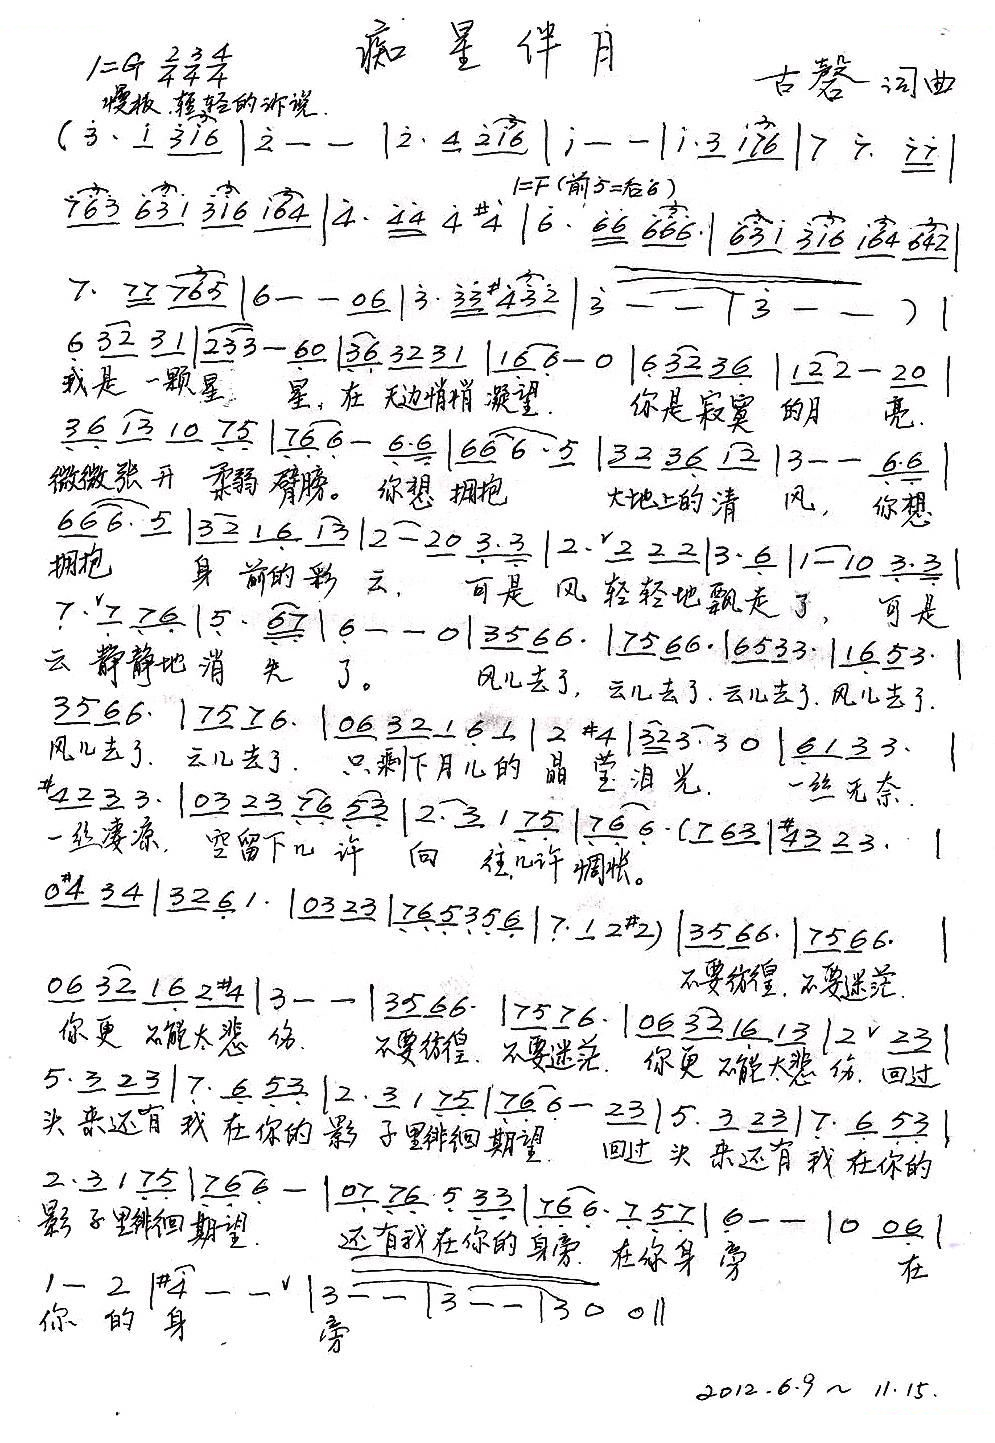 痴星伴月
1=G 2/4 3/4 4/4
慢板.轻轻的诉说.
古磬 词曲
(3·1 316|2--|2·4 216|1--|1·3 176|7 7·77|
1=F(前5=后6)
763 631 316 164|4·44 4 #4|6·66 666·|631 316 164 642|
7·77 765|6--06|3·33#432|3--|3--)|
6 32 31|233-60|36 3231|166-0|6 3236|122-20|
我是一颗星 星,在天边悄悄凝望. 你是寂寞的月 亮.
36 13 10 75|766-6·6|666·5|32 36 12|3--6·6|
微微张开 柔弱臂膀。你想拥抱 大地上的清 风, 你想
666·5|32 16 13|2-20 3·3|2·∨2 22|3·6|1-10 3·3|
拥抱 身前的彩云, 可是风轻轻地飘走了, 可是
7·∨7 76|5·67|6--0|3566·|7566·|6533·|1653·|
云静静地消失了。 风儿去了,云儿去了.云儿去了.风儿去了.
3566·|7576·|06 3216 1|2 #4|323·30|6133·|
风儿去了.云儿去了.只剩下月儿的晶莹泪光. 一丝无奈.
#4233·|03 23 76 53|2·3 1 75|766·(763|#4323·|
一丝凄凉. 空留下几许向往,几许惆怅。
0#4 34|3261·|0323|765356|7·12#2)|3566·|7566·|
不要彷徨.不要迷茫.
06 32 16 2#4|3--|3566·|7576·|06 32 16 13|2∨23|
你更不能太悲伤. 不要彷徨.不要迷茫. 你更不能太悲伤.回过
5·3 23|7·6 53|2·3 1 75|766-23|5·3 23|7·6 53|
头来还有我在你的影子里徘徊期望. 回过头来还有我在你的
2·3 1 75|766-|07 76·5 33|766·7 57|6--|0 06|
影子里徘徊期望. 还有我在你的身旁.在你身旁 在
1-2|#4--∨|3--|3--|3 0 0‖
你的身 旁
2012.6.9~11.15.